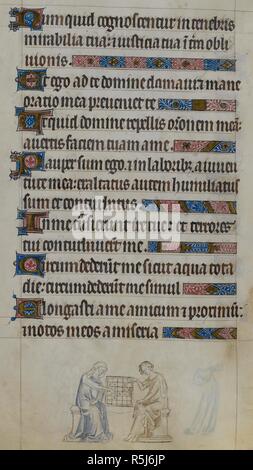 Numquid cognoscentur in tenebris
mirabilia tua: et iusticia tua in terra obli
uionis.
Et ego ad te domine clamaui: et mane
oratio mea preueniet te
Ut quid domine repellis orōnem meā:
auertis faciem tuam a me.
Pauper sum ego et in laboribȝ a iuuen
tute mea: exaltatus autem humiliatus
sum et conturbatus
In me transierunt ire tue: et terrores
tui conturbauerunt me.
Circumdederūt me sicut aqua tota
die: circumdederūt me simul
Elongasti a me amicum et proximū:
et notos meos a miseria.
alamy
R5J6JP